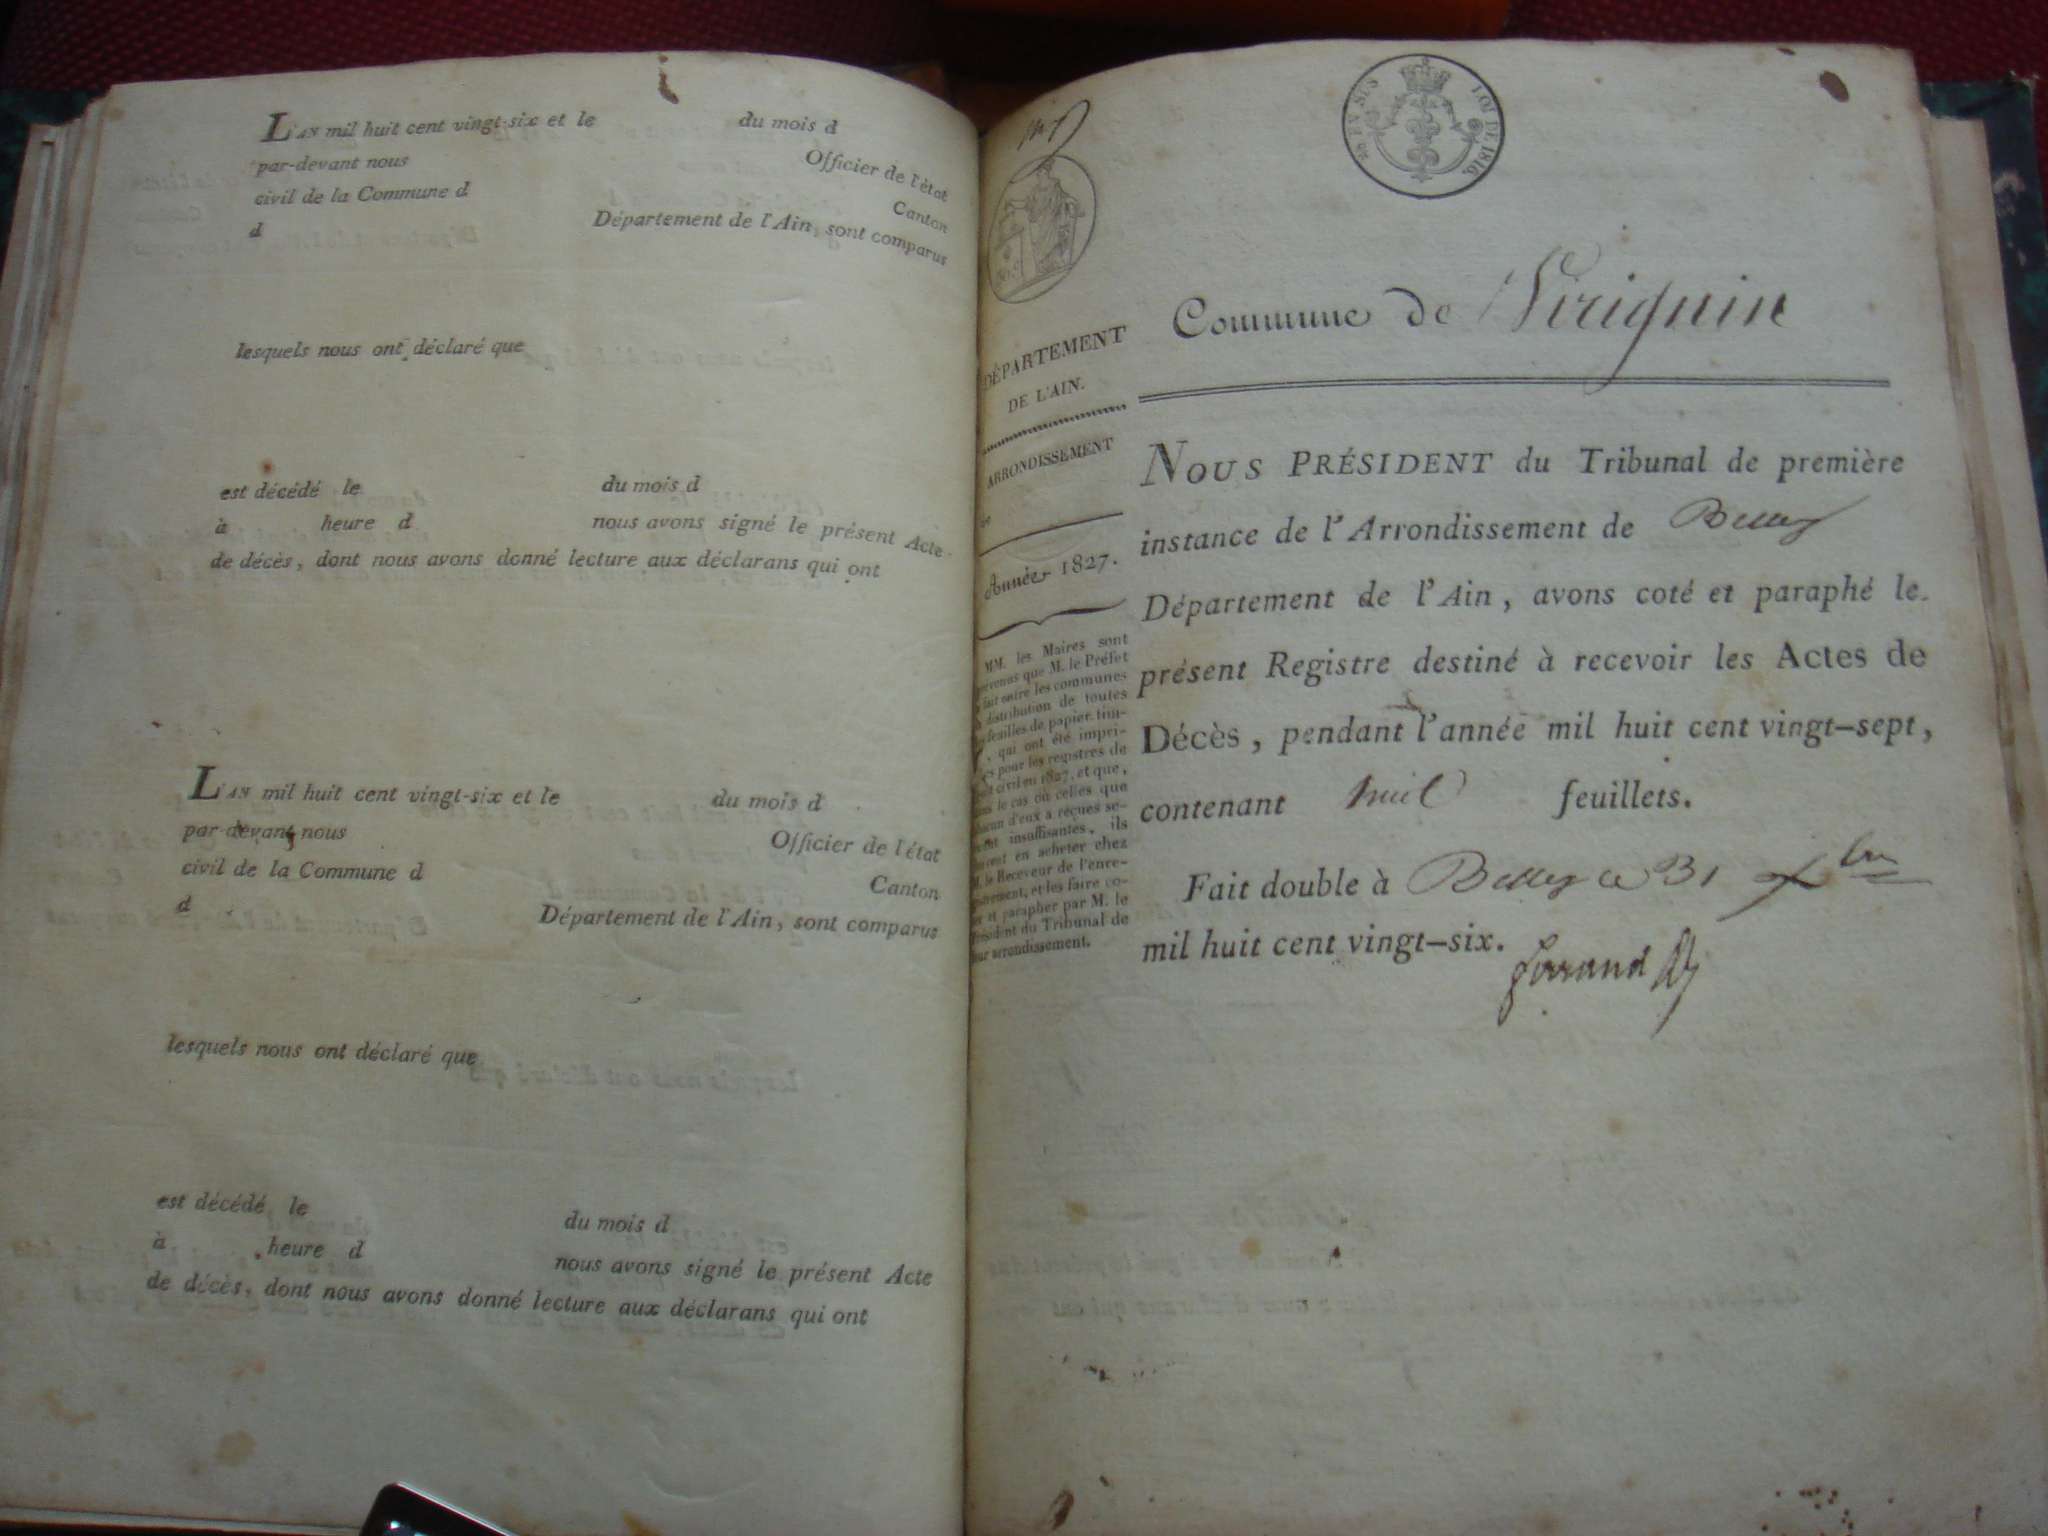 L'AN mil huit cent vingt-six et le du mois d
par-devant nous Officier de l'état
civil de la Commune d Canton
d Département de l'Ain, sont comparus
lesquels nous ont déclaré que
est décédé le du mois d
à heure d nous avons signé le présent Acte
de décès, dont nous avons donné lecture aux déclarans qui ont
L'AN mil huit cent vingt-six et le du mois d
par devant nous Officier de l'état
civil de la Commune d Canton
d Département de l'Ain, sont comparus
lesquels nous ont déclaré que
est décédé le du mois d
à heure d nous avons signé le présent Acte
de décès, dont nous avons donné lecture aux déclarans qui ont
EN SUS
LOI DE 1816.
DÉPARTEMENT
DE L'AIN.
ARRONDISSEMENT
Année 1827.
MM. les Maires sont
que M. le Préfet
fait entre les communes
distribution de toutes
feuilles de papier tim-
qui ont été impri-
pour les registres de
civil en 1827, et que,
le cas où celles que
d'eux a reçues se-
insuffisantes, ils
en acheter chez
M. le Receveur de l'enre-
et les faire co-
et parapher par M. le
Président du Tribunal de
arrondissement.
Commune de Virignin
NOUS PRÉSIDENT du Tribunal de première
instance de l'Arrondissement de Belley
Département de l'Ain, avons coté et paraphé le
présent Registre destiné à recevoir les Actes de
Décès, pendant l'année mil huit cent vingt-sept,
contenant huit feuillets.
Fait double à Belley ce 31 xbre
mil huit cent vingt-six.